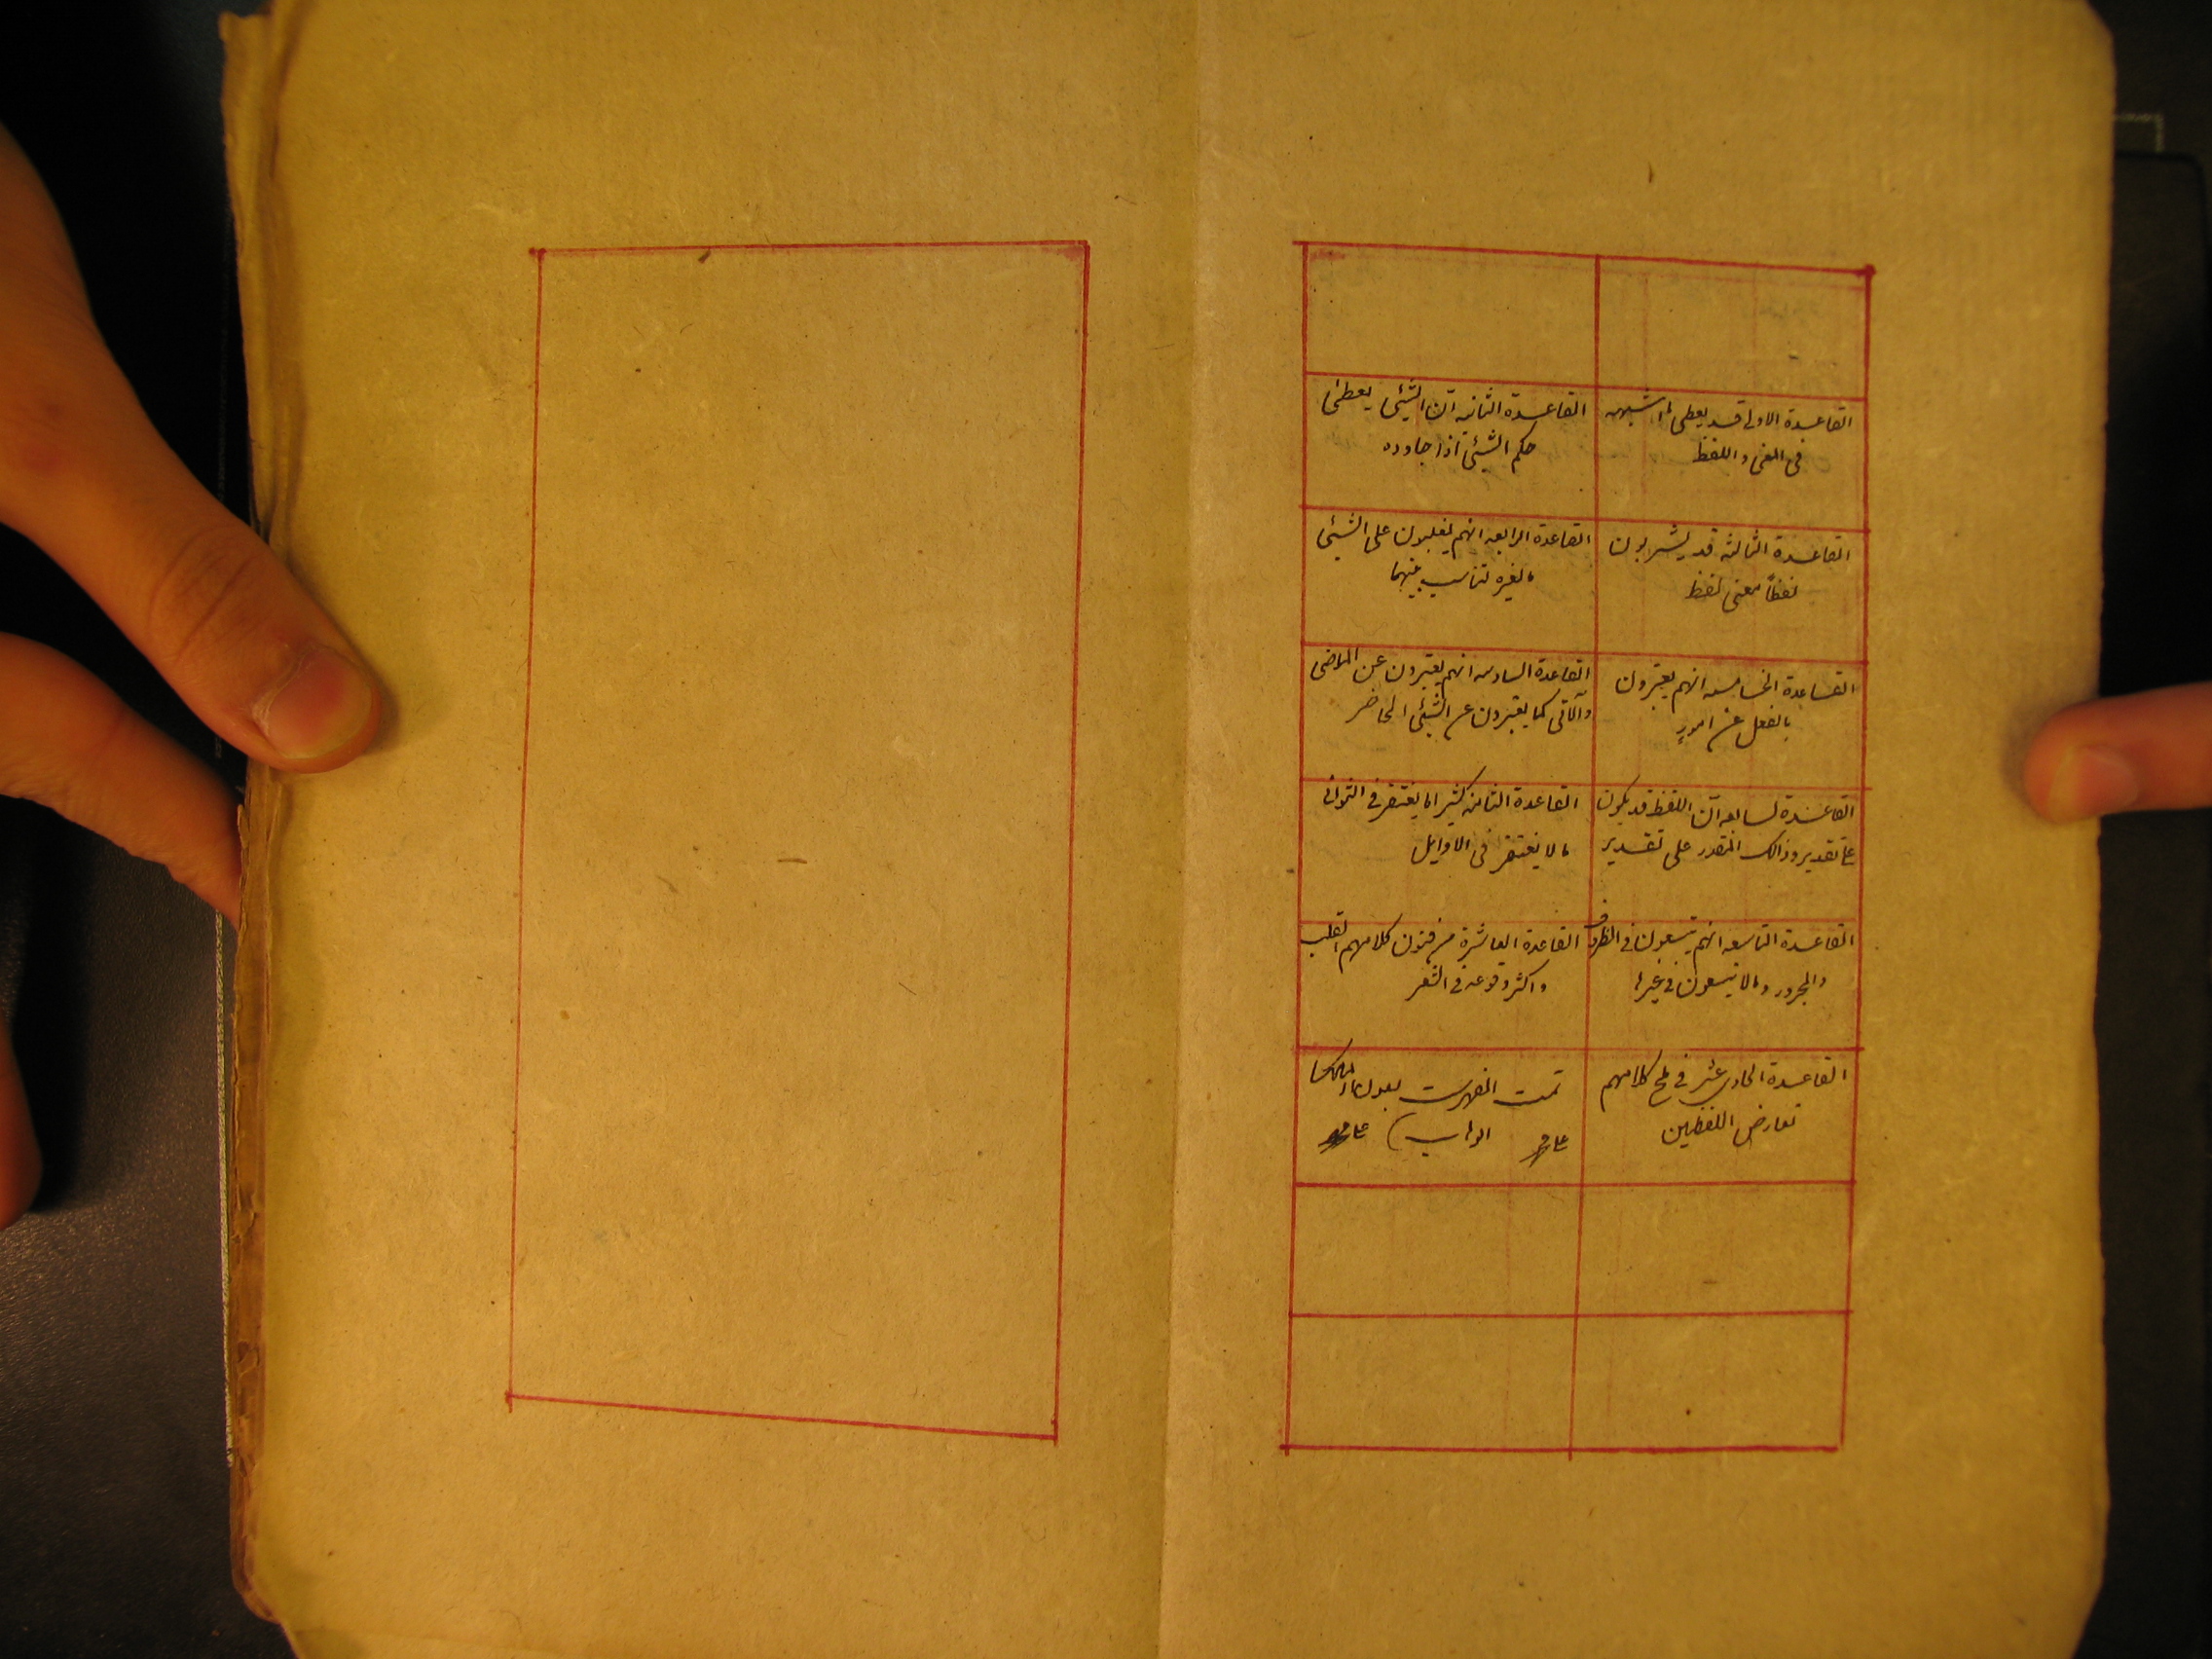 القاعدة الاولى قد يعطى ما اشبهه
فى المعنى و اللفظ
القاعدة الثانيه انّ الشيئى يعطى
حكم الشيئى اذا جاوره
القاعدة الثالثه قد يشربون
لفظاً معنى لفظ
القاعدة الرابعه انهم يغلبون على الشيئى
ما لغيره لتناسب بينهما
القاعدة الخامسه انهم يعبّرون
بالفعل عن امورٍ
القاعدة السادسه انهم يعبّرون عن الماضى
والآتى كما يعبّرون عن الشيئى الحاضر
القاعدة السابعه انّ اللفظ قد يكون
على تقدير وذالك المقدر على تقدير
القاعدة الثامنه كثيرا ما يغتفر فى الثوانى
ما لا يغتفر فى الاوايل
القاعدة التاسعه انهم يتسعون فى الظروف
والمجرور و ما لا يتسعون فى غيرها
القاعدة العاشرة من فنون كلامهم القلب
و اكثر وقوعه فى الشعر
القاعدة الحادى عشر فى ملح كلامهم
تعارض اللفظين
تمت الفهرست بعون الملك
الوهاب